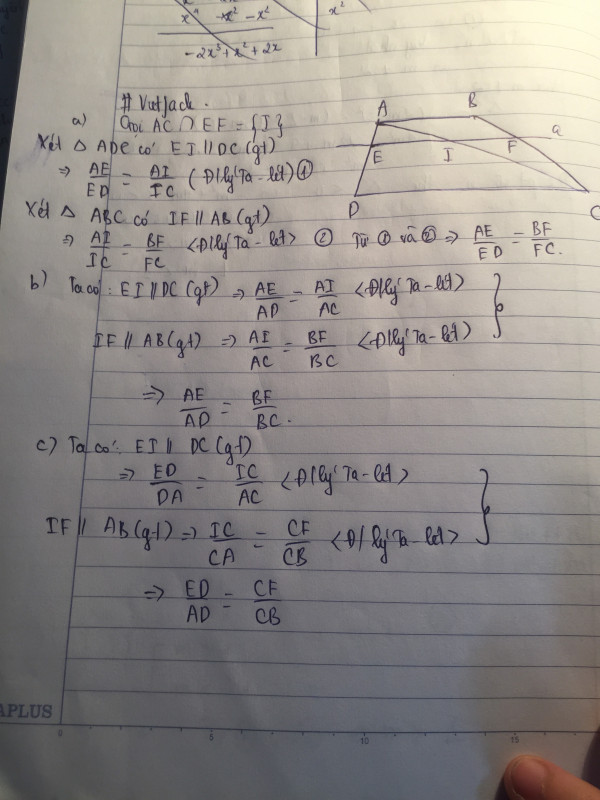 x² - x²
x²
- 2x³ + x² + 2x
# VietJack.
a) Gọi AC ∩ EF = {I}
Xét Δ ADC có EI // DC (gt)
⇒ AE/ED = AI/IC (Đ/lý Ta-lét) ①
Xét Δ ABC có IF // AB (gt)
⇒ AI/IC = BF/FC <Đ/lý Ta-lét> ② Từ ① và ② ⇒ AE/ED = BF/FC.
b) Ta có: EI // DC (gt) ⇒ AE/AD = AI/AC <Đ/lý Ta-lét>
IF // AB (gt) ⇒ AI/AC = BF/BC <Đ/lý Ta-lét>
⇒ AE/AD = BF/BC.
c) Ta có: EI // DC (gt)
⇒ ED/DA = IC/AC <Đ/lý Ta-lét>
IF // AB (gt) ⇒ IC/CA = CF/CB <Đ/lý Ta-lét>
⇒ ED/AD = CF/CB
A B
a
E I F
D C
APLUS
0 5 10 15